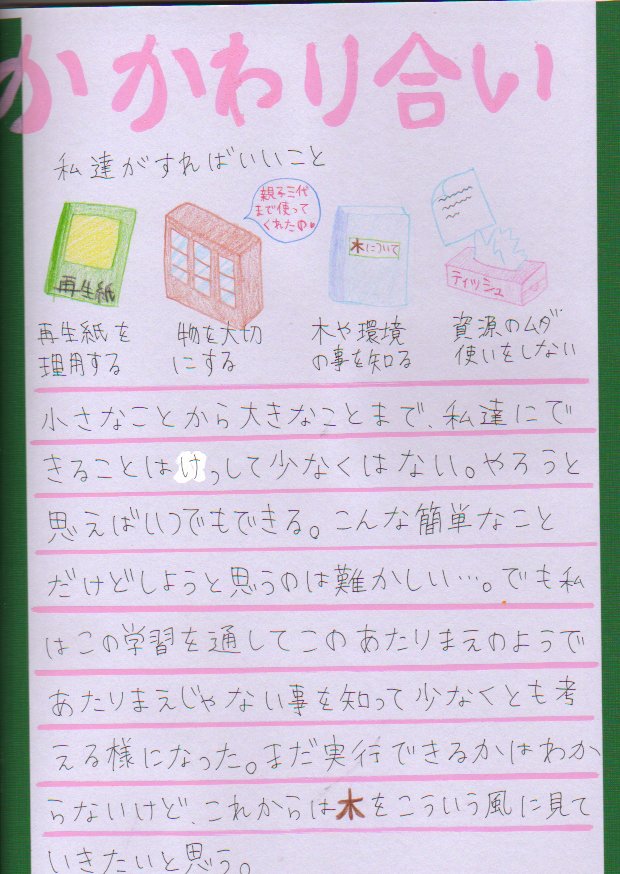 かかわり合い
私達がすればいいこと
再生紙
親子三代
まで使って
くれたの。
木について
ティッシュ
再生紙を
理用する
物を大切
にする
木や環境
の事を知る
資源のムダ
使いをしない
小さなことから大きなことまで、私達にで
きることはけっして少なくはない。やろうと
思えばいつでもできる。こんな簡単なこと
だけどしようと思うのは難かしい…。でも私
はこの学習を通してこのあたりまえのようで
あたりまえじゃない事を知って少なくとも考
える様になった。まだ実行できるかはわか
らないけど、これからは木をこういう風に見て
いきたいと思う。